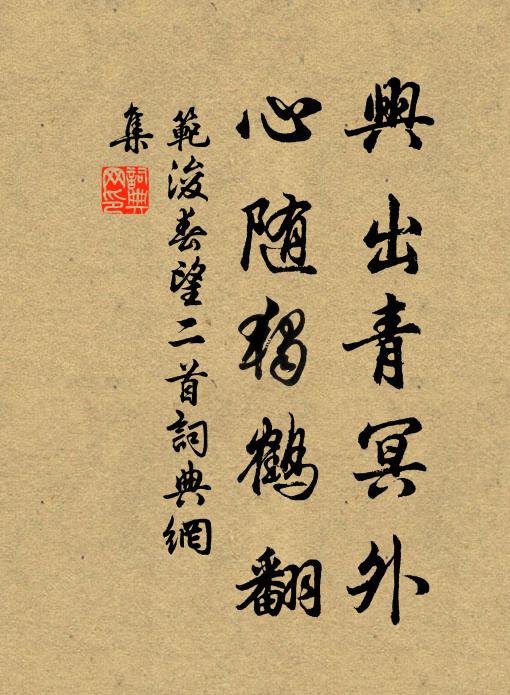 興出青冥外
心随獨鶴翻
範浚春望二首詞典網
集
詞典
网印